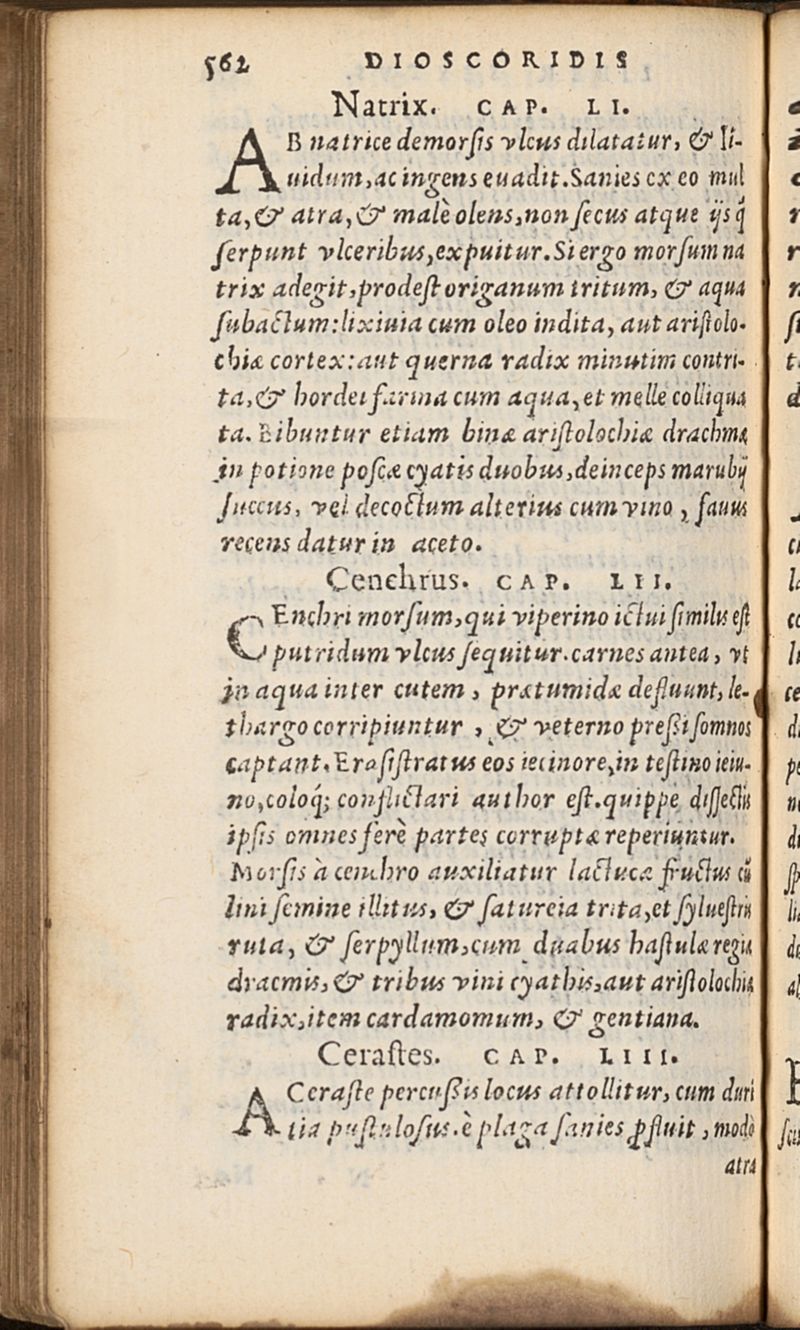 562 DIOSCORIDIS
Natrix. CAP. LI.
AB natrice demorsis vlcus dilatatur, & li-
uidum, ac ingens euadit. Sanies ex eo mul
ta, & atra, & malè olens, non secus atque ijs q́
serpunt vlceribus, expuitur. Si ergo morsum na
trix adegit, prodest origanum tritum, & aqua
subactum: lixiuia cum oleo indita, aut aristolo-
chiæ cortex: aut querna radix minutim contri-
ta, & hordei farina cum aqua, et melle colliqua
ta. Bibuntur etiam binæ aristolochiæ drachmæ
in potione poscæ cyatis duobus, deinceps marubij
succus, vel decoctum alterius cum vino, fauus
recens datur in aceto.
Cenchrus. CAP. LII.
CEnchri morsum, qui viperino ictui similis est
putridum vlcus sequitur. carnes antea, vt
in aqua inter cutem, prætumidæ defluunt, le-
thargo corripiuntur, & veterno pressi somnos
captant. Erasistratus eos iecinore, in testino ieiu-
no, coloq́; conflictari author est. quippe dissectis
ipsis omnes ferè partes corruptæ reperiuntur.
Morsis à cenchro auxiliatur lactucæ fructus cū
lini semine illitus, & satureia trita, et syluestris
ruta, & serpyllum, cum duabus hastulæ regiæ
dracmis, & tribus vini cyathis, aut aristolochiæ
radix, item cardamomum, & gentiana.
Cerastes. CAP. LIII.
A Ceraste percussis locus attollitur, cum duri
tia pustulosus. è plaga sanies ꝓfluit, modò
atra